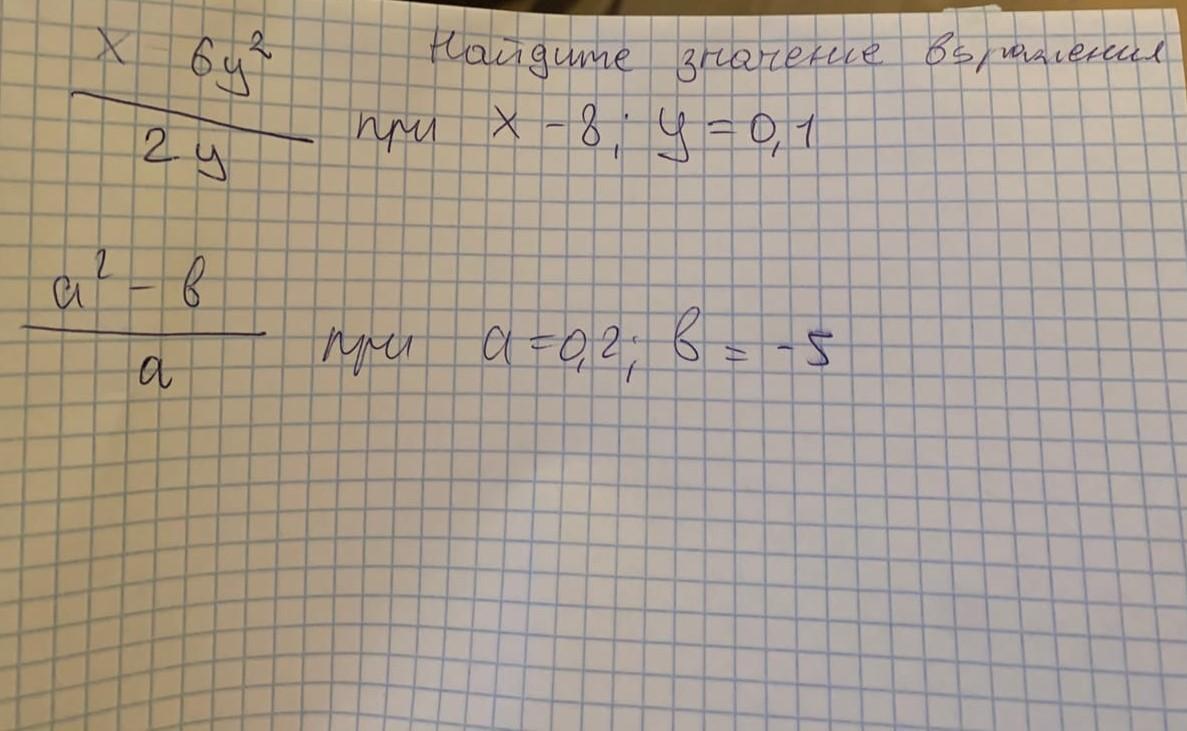 x 6y² Найдите значение выражения
2y при x - 8; y = 0,1
a² - в
a при a = 0,2; в = -5